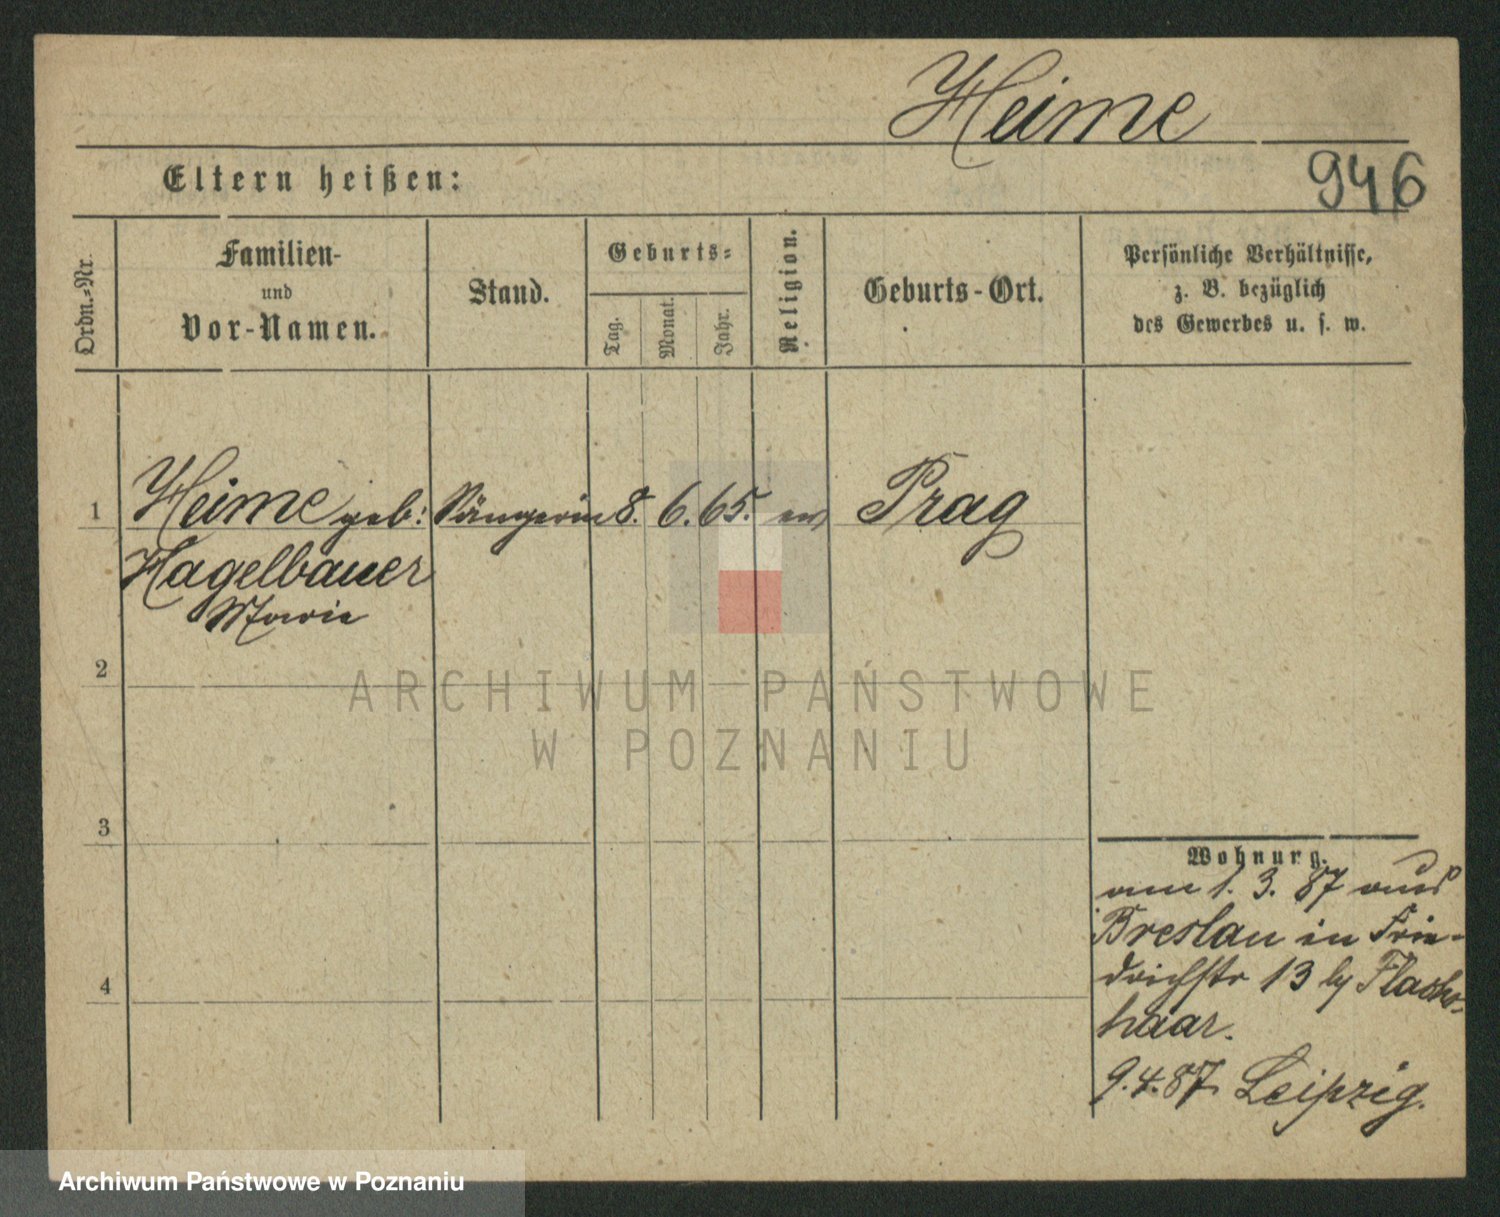 Heime
946
Eltern heißen:
Ordn.-Nr.
Familien-
und
Vor-Namen.
Stand.
Geburts-
Tag.
Monat.
Jahr.
Religion.
Geburts-Ort.
Persönliche Verhältnisse,
z. B. bezüglich
des Gewerbes u. s. w.
1 Heime geb: Sängerin 8. 6. 65. ev Prag
Hagelbauer
Marie
2
3
4
Wohnung.
am 1. 3. 87 aus
Breslau in Frie-
drichstr 13 by
haar.
9.4.87. Leipzig.
ARCHIWUM PAŃSTWOWE
W POZNANIU
Archiwum Państwowe w Poznaniu